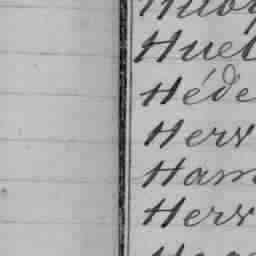 Huet
Héde
Herv
Ham
Herv